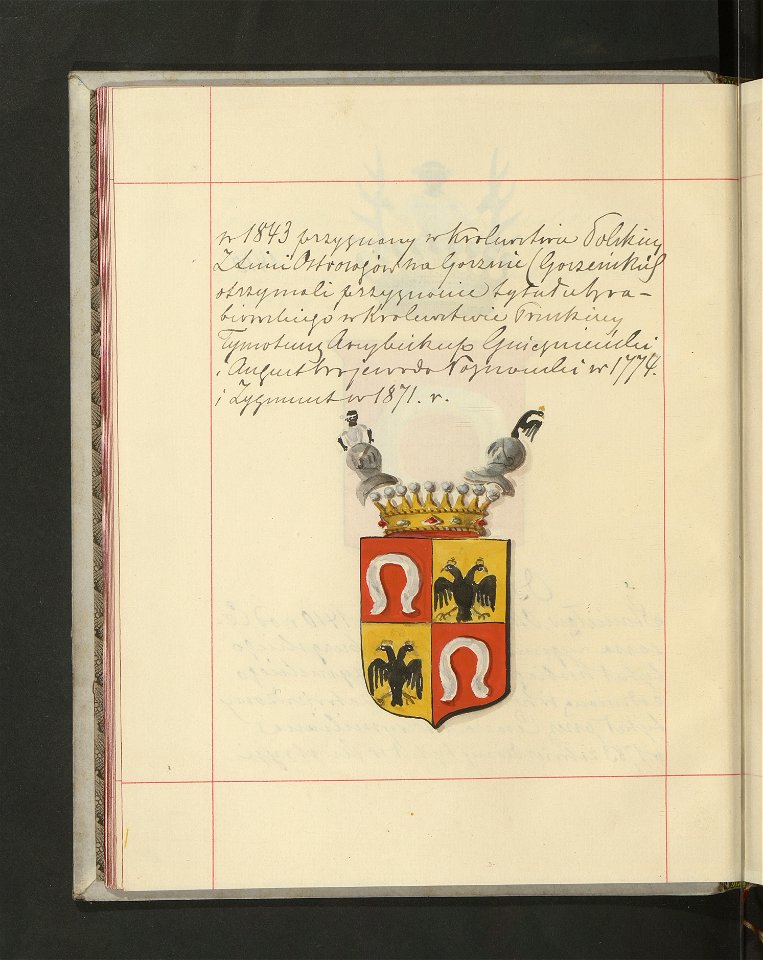 w 1843 przyznany w Krolewstwie Polskim
Z Linii Ostrorogów na Gorznie (Gorzeński)
otrzymali przyznanie tytułu hra-
biowskiego w Krolewstwie Pruskiem
Tymoteusz Arcybiskup Gnieznienski
i August Wojewoda Poznanski w 1774.
i Zygmunt w 1871. r.